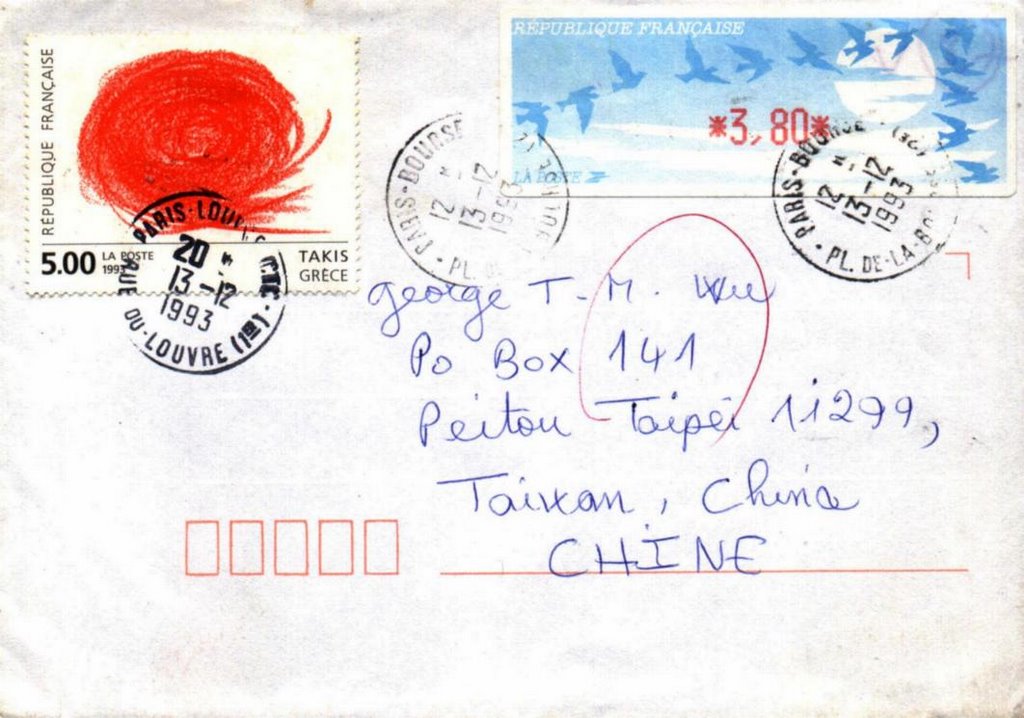 RÉPUBLIQUE FRANÇAISE
5.00 LA POSTE
1993
TAKIS
GRÈCE
RÉPUBLIQUE FRANÇAISE
*3,80*
LA POSTE
PARIS-LOUVRE
20 *
13-12
1993
RUE DU-LOUVRE (1er)
PARIS-BOURSE
12 *
13-12
1993
PL. DE
PARIS-BOURSE
12 *
13-12
1993
PL. DE-LA-BO
george T-M. Wu
Po Box 141
Peitou Taipei 11299,
Taiwan, China
CHINE